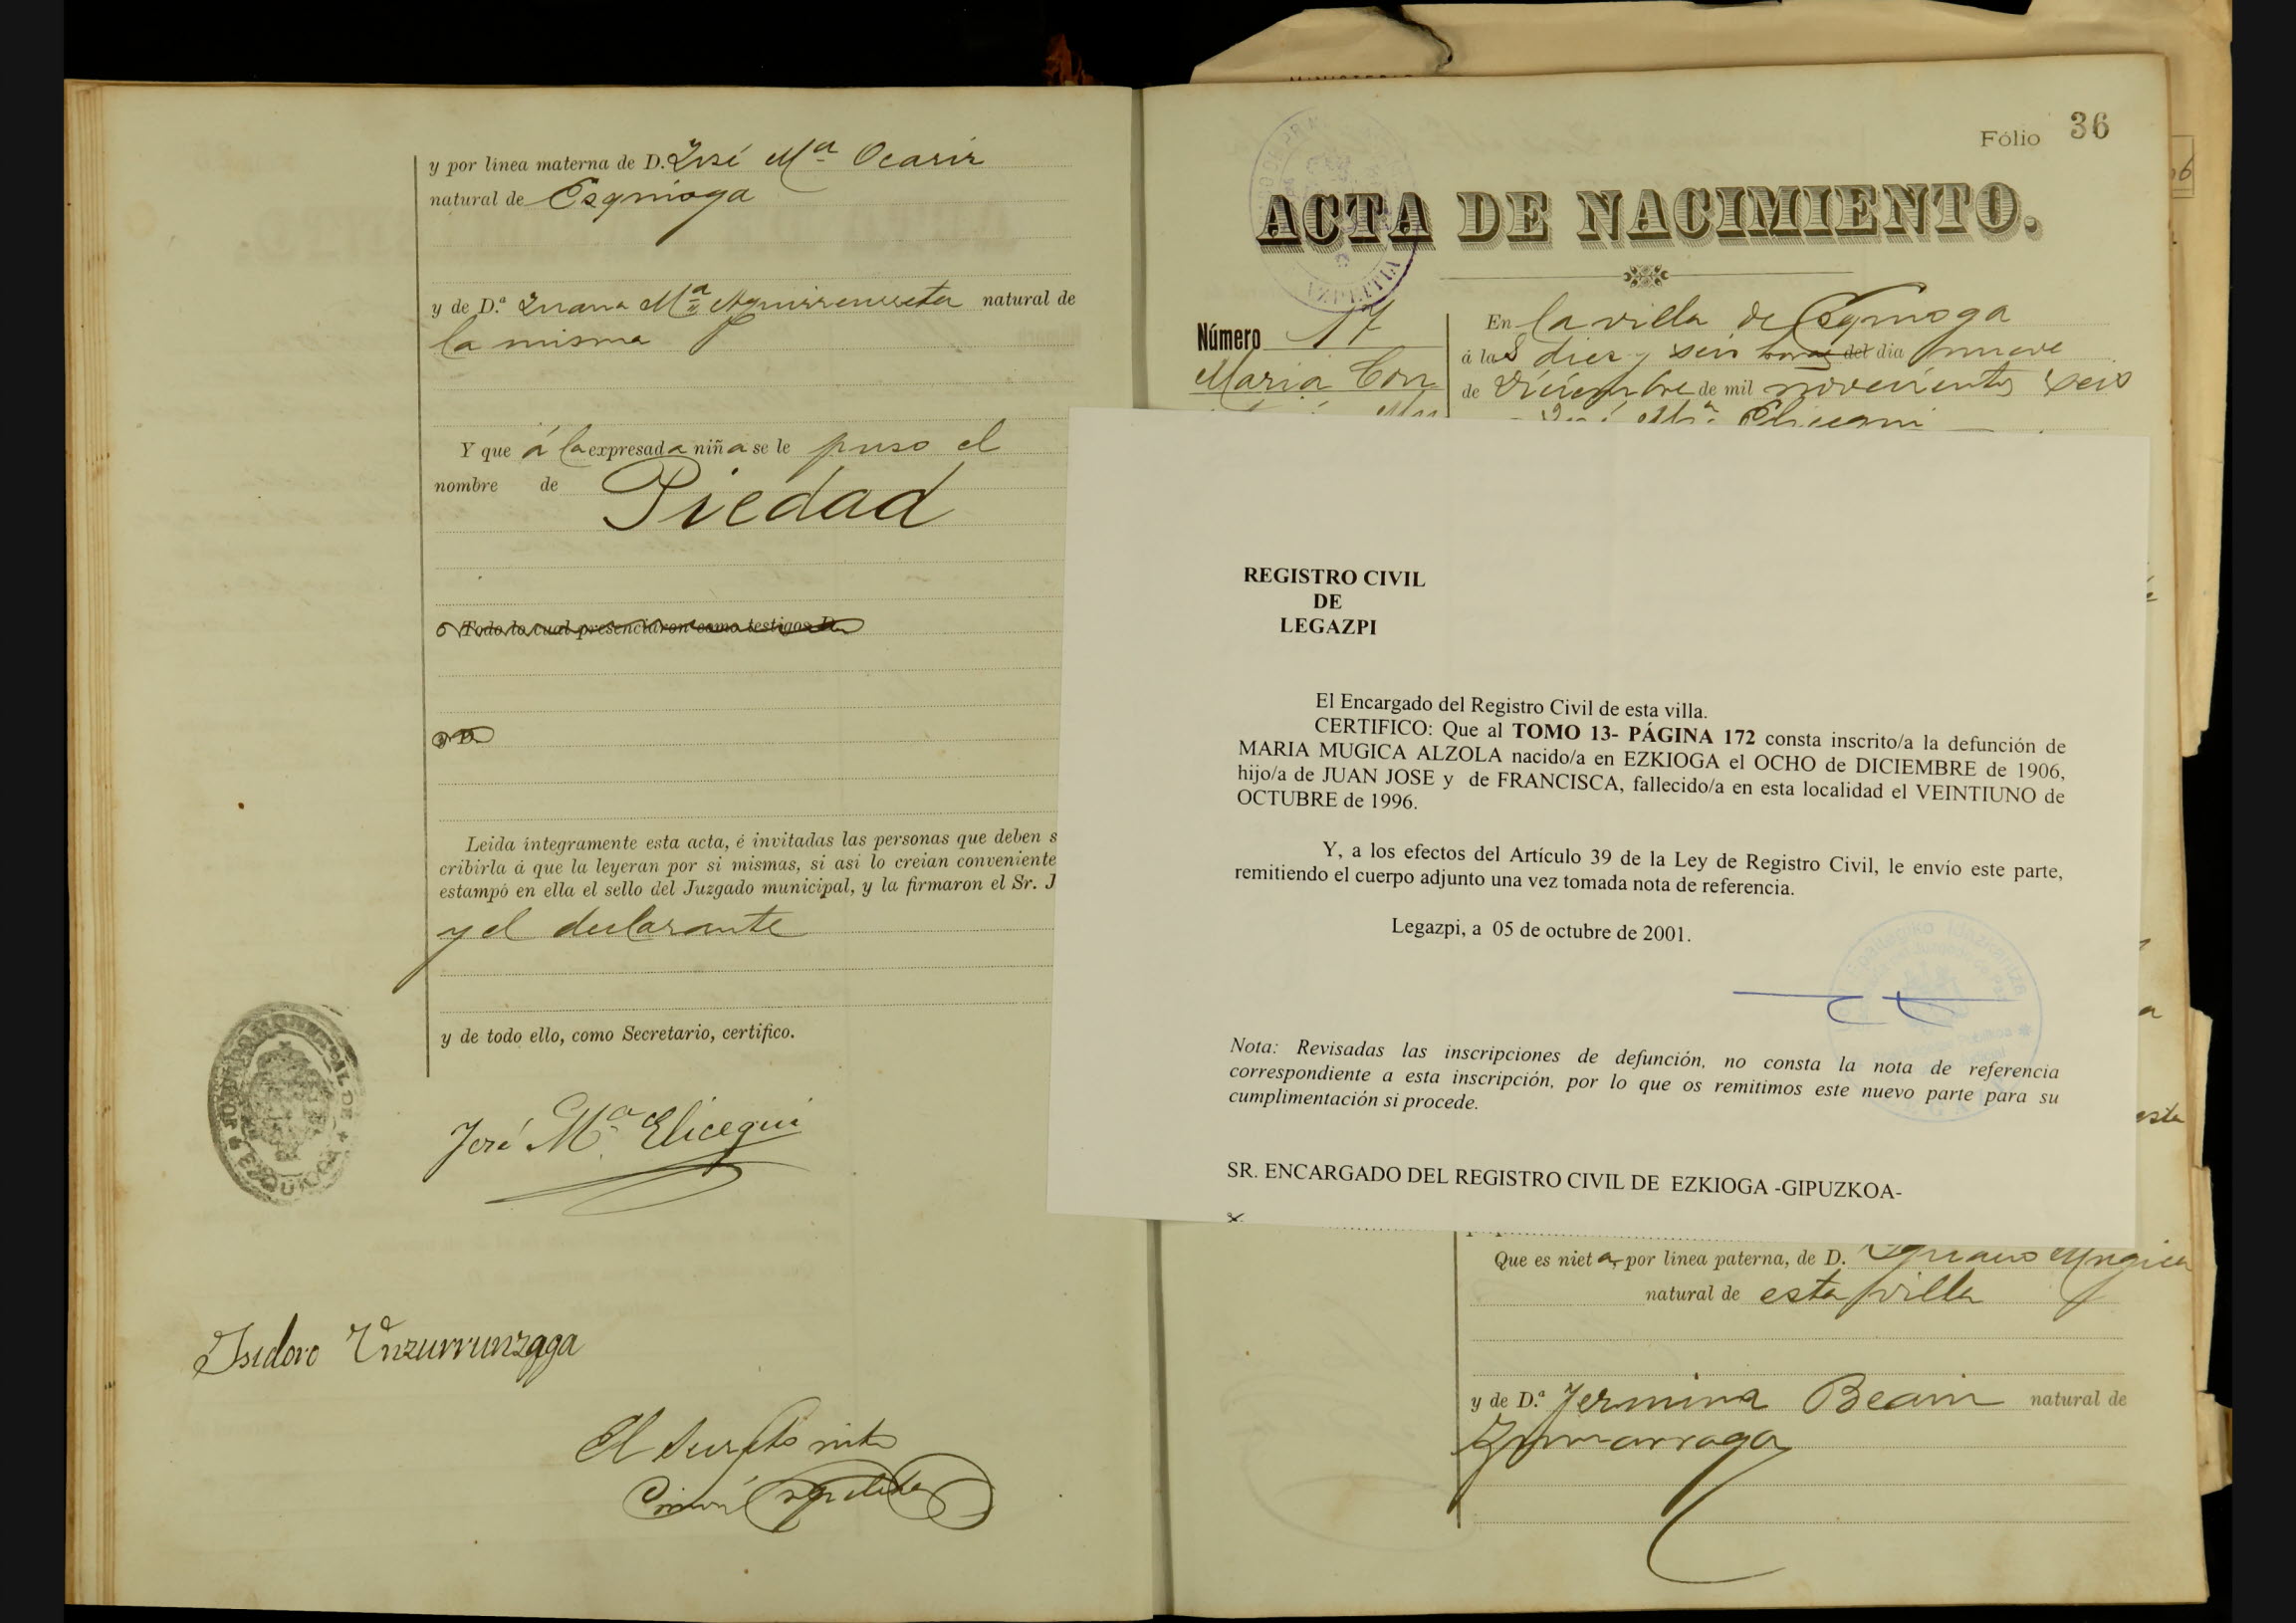 y por línea materna de D. José Mª Ocariz
natural de Esquioga
y de D.ª Juana Mª Aguirrezurreta natural de
la misma
Y que á la expresada niña se le puso el
nombre de Piedad
Todo lo cual presenciaron como testigos D.
y D.
Leida íntegramente esta acta, é invitadas las personas que deben s
cribirla á que la leyeran por si mismas, si asi lo creian conveniente
estampó en ella el sello del Juzgado municipal, y la firmaron el Sr. J
y el declarante
y de todo ello, como Secretario, certifico.
José Mª Elicegui
Isidoro Unzurrunzaga
El
Fólio 36
ACTA DE NACIMIENTO.
Número 17
Maria Con
En la villa de Esquioga
á las diez y seis horas del dia nueve
de Diciembre de mil novecientos seis
José Mª Elicegui
REGISTRO CIVIL
DE
LEGAZPI
El Encargado del Registro Civil de esta villa.
CERTIFICO: Que al TOMO 13- PÁGINA 172 consta inscrito/a la defunción de
MARIA MUGICA ALZOLA nacido/a en EZKIOGA el OCHO de DICIEMBRE de 1906,
hijo/a de JUAN JOSE y de FRANCISCA, fallecido/a en esta localidad el VEINTIUNO de
OCTUBRE de 1996.
Y, a los efectos del Artículo 39 de la Ley de Registro Civil, le envío este parte,
remitiendo el cuerpo adjunto una vez tomada nota de referencia.
Legazpi, a 05 de octubre de 2001.
Nota: Revisadas las inscripciones de defunción, no consta la nota de referencia
correspondiente a esta inscripción, por lo que os remitimos este nuevo parte para su
cumplimentación si procede.
SR. ENCARGADO DEL REGISTRO CIVIL DE EZKIOGA -GIPUZKOA-
Que es nieta, por línea paterna, de D. Ignacio Mugica
natural de esta villa
y de D.ª Fermina Beain natural de
Zumarraga